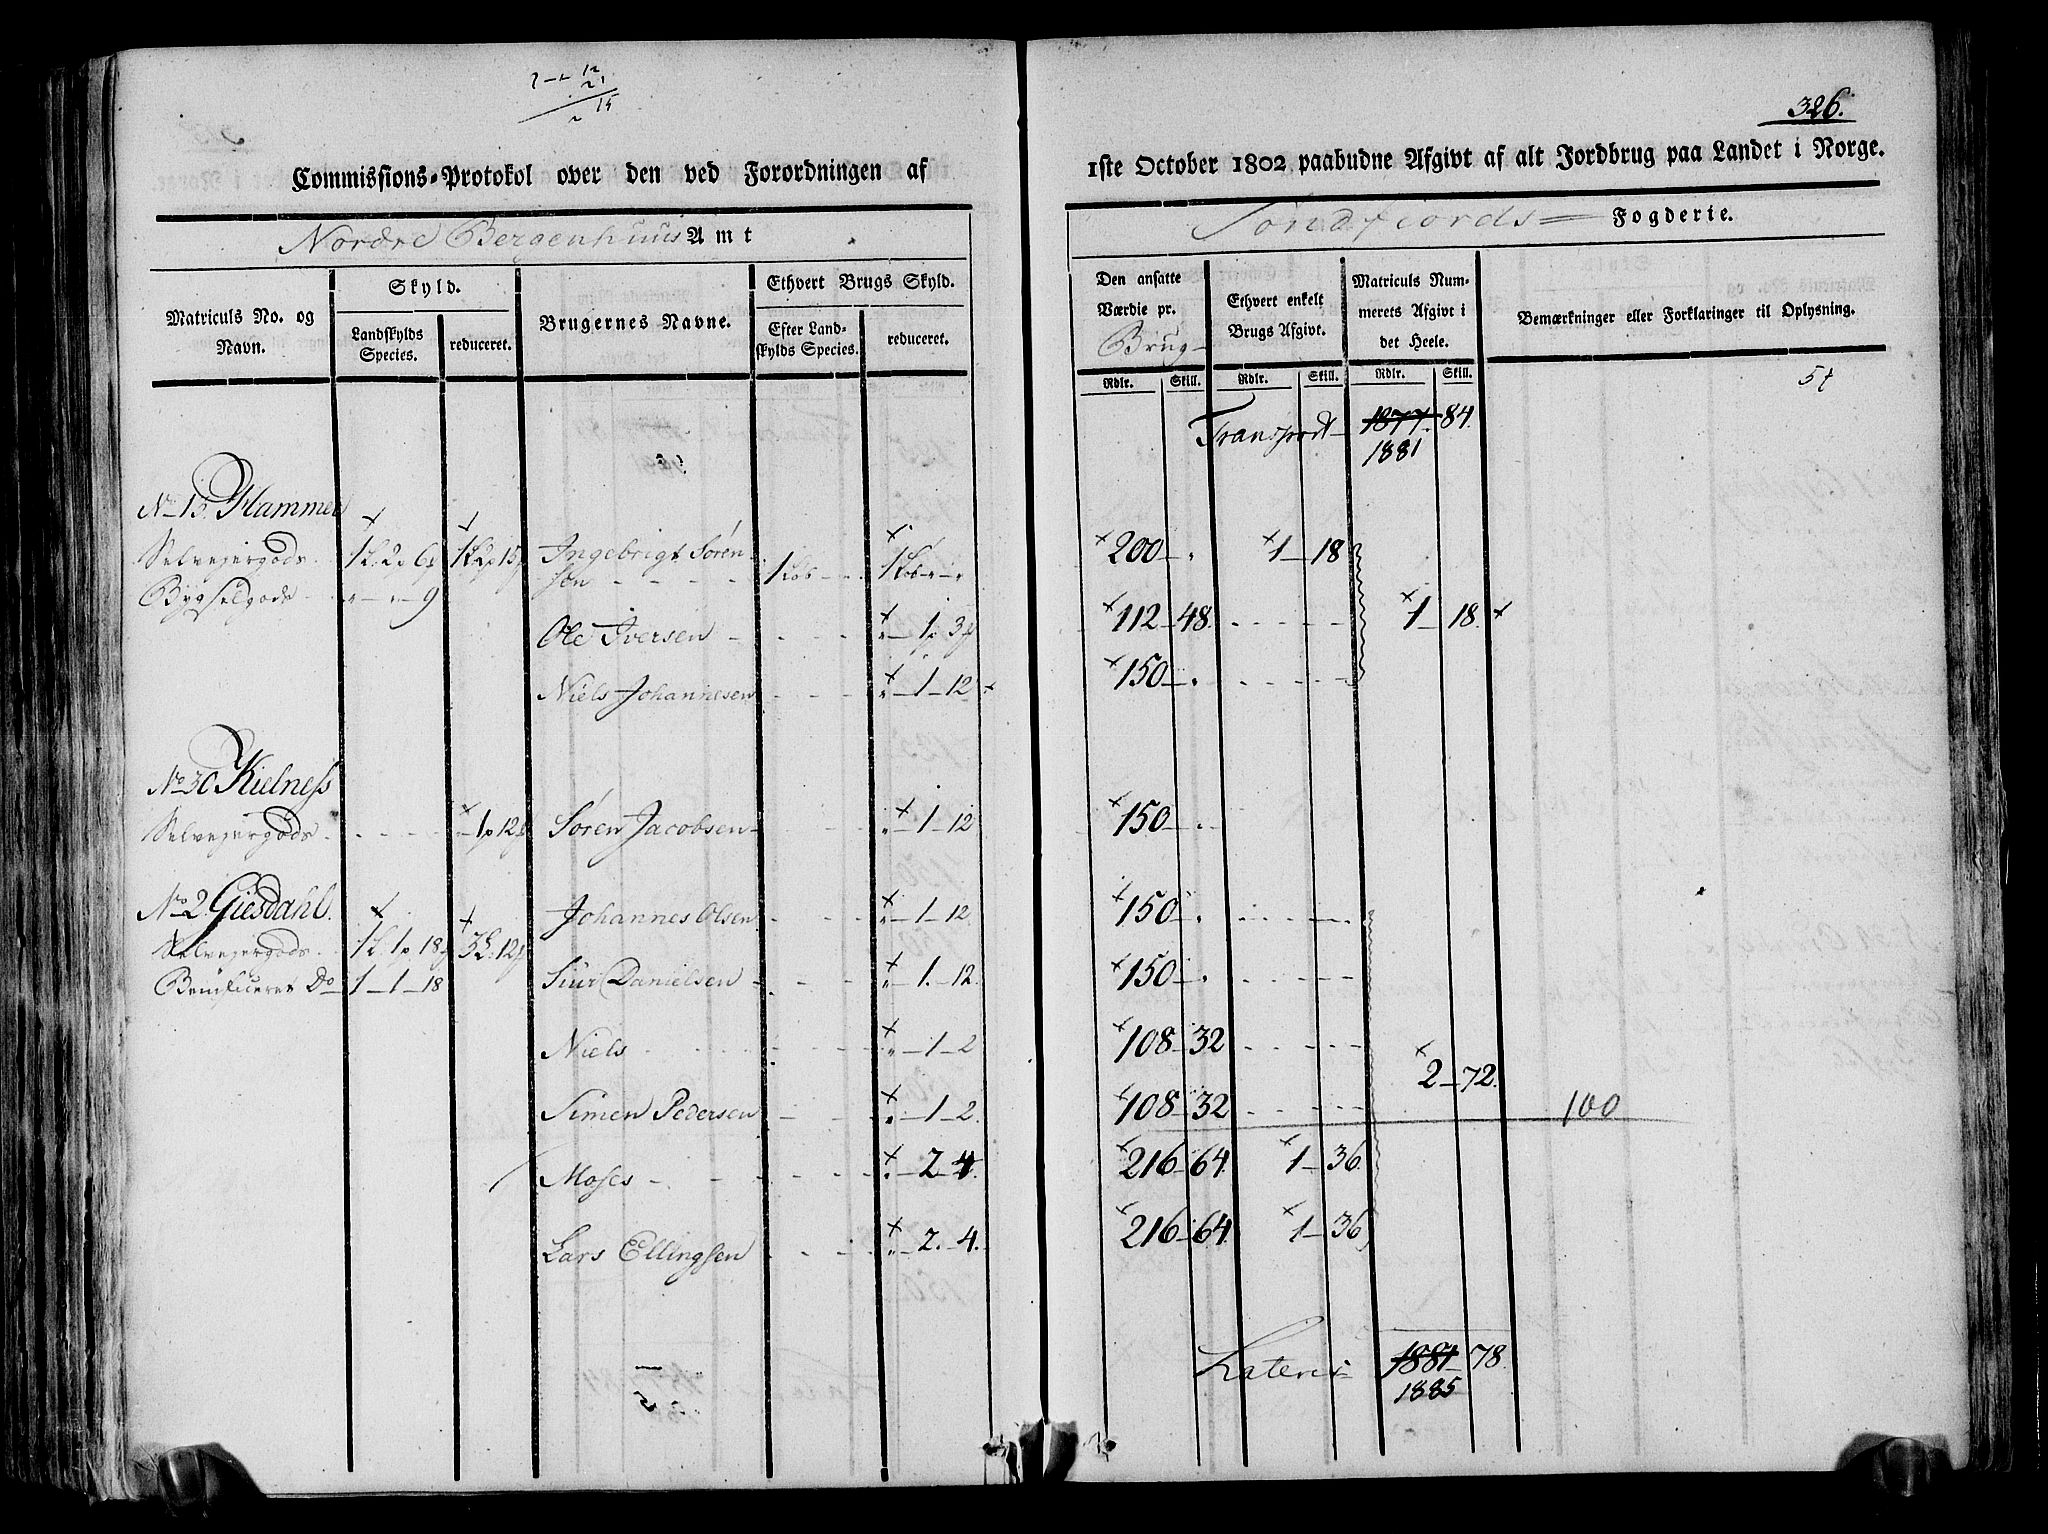 326.
Commissions-Protokol over den ved Forordningen af 1ste October 1802 paabudne Afgivt af alt Jordbrug paa Landet i Norge.
Nordre Bergenhuus Amt
Søndfiords Fogderie.
Matriculs No. og Navn.
Skyld.
Landskylds Species.
reduceret.
Brugernes Navne.
Ethvert Brugs Skyld.
Efter Landskylds Species.
reduceret.
Den ansatte Værdie pr. Brug
Ethvert enkelt Brugs Afgivt.
Matriculs Nummerets Afgivt i det Heele.
Bemærkninger eller Forklaringer til Oplysning.
Rdlr. Skill. Rdlr. Skill. Rdlr. Skill.
Transport 1877 84.
1881
No 15. Hammer
Selvejergods 1 L. 2 p 6 1 L 2 p 15 Ingebrigt Søren-
søn 1 Løb 1 Løb 200 1 18
Bygselgods 9
Ole Iversen 1 p 3 112 48. 1 18.
Niels Johannesen 1 12 150
No 30 Kielness
Selvejergods 1 p 12 Søren Jacobsen 1 12 150
No 2. Giesdahl. Johannes Olsen 1 12 150
Selvejergods 1 L. 1 p 18 3 L. 12
Benificeret Do 1 1 18 Siur Danielsen 1. 12. 150
Niels 1 2 108 32
2 72.
Simen Pedersen 1 2. 108 32 100
Moses 2 4. 216 64. 1 36.
Lars Ellingsen 2. 4. 216 64. 1 36
Lateris 1881 78.
1885